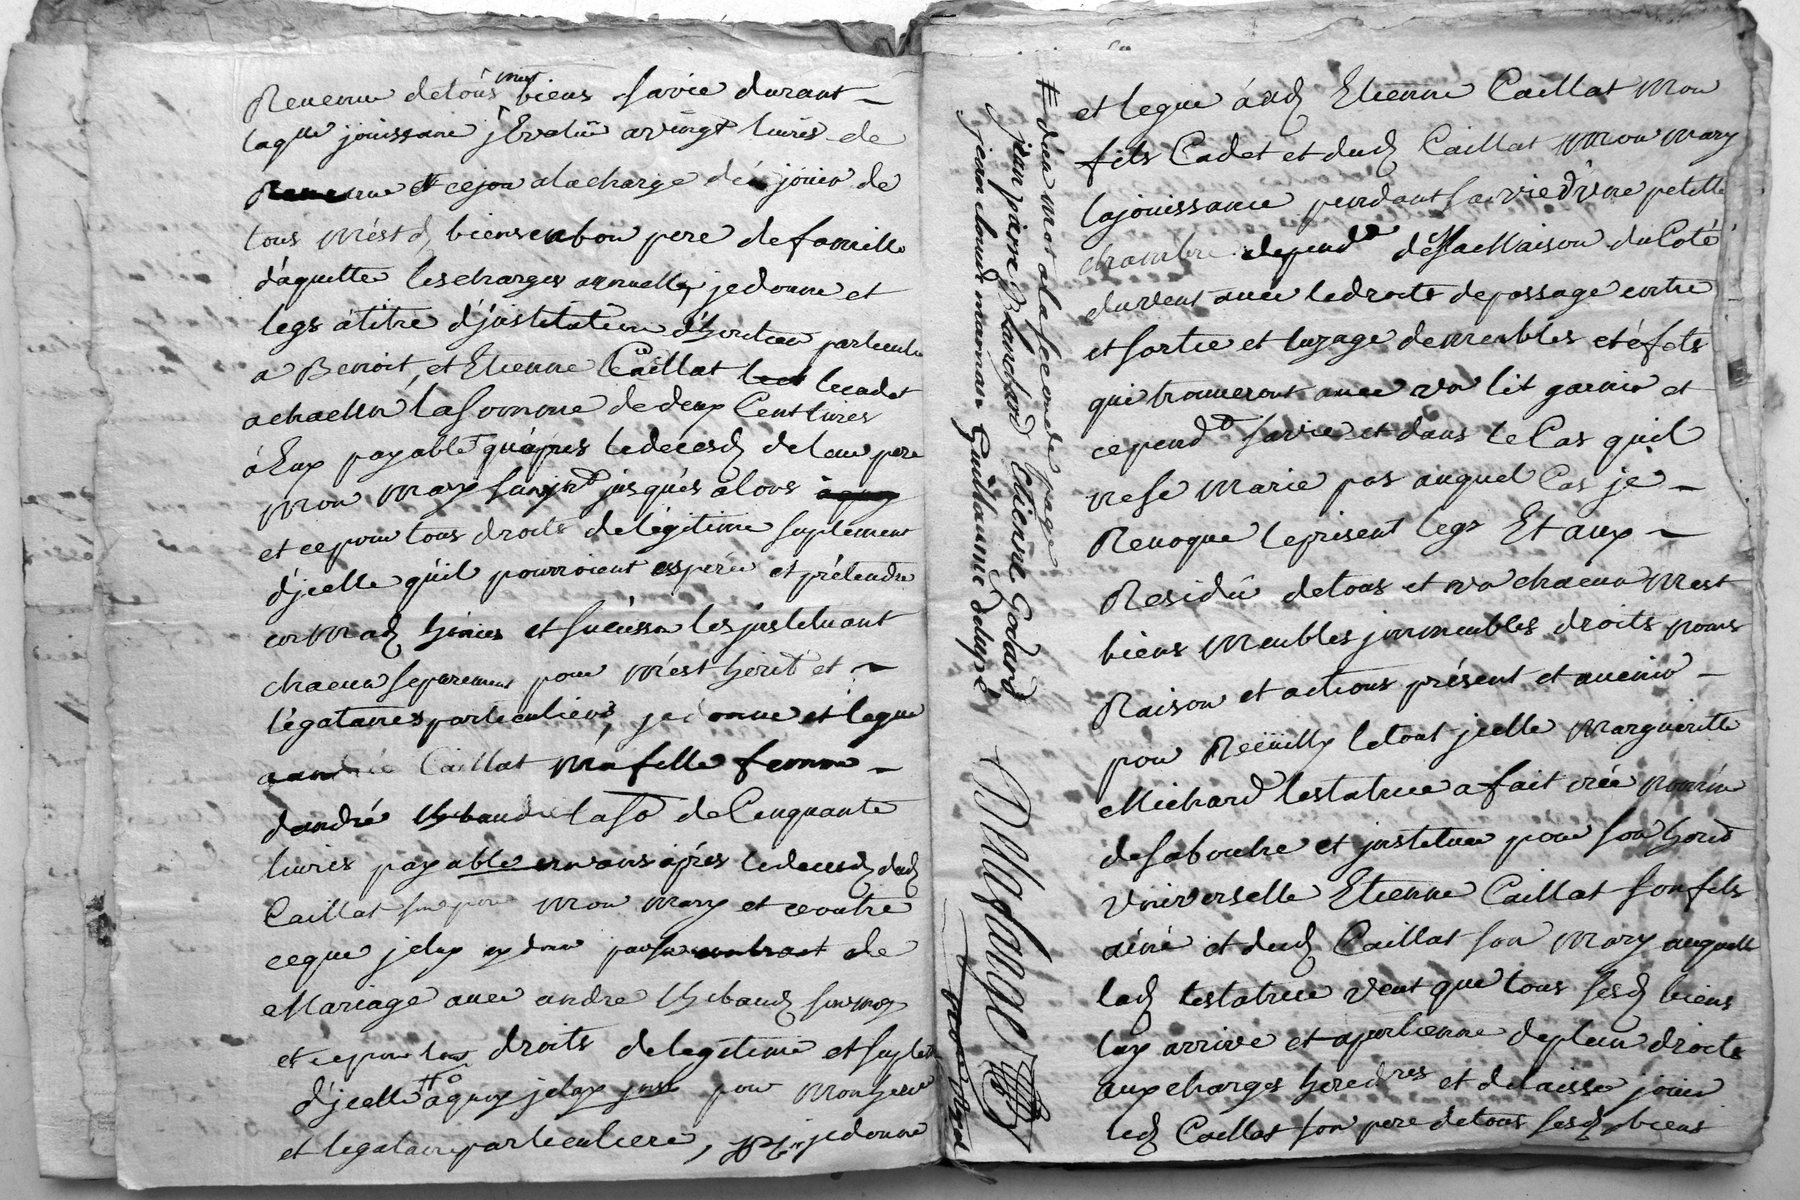 Revenu de tous mes biens sa vie durant
laqle jouissance j'Evalue a vingt livres de
et ce jou a la charge de jouir de
tous mesd biens en bon pere de famille
d'aquitter les charges annuelles, je donne et
legs á titre d'jnstitution d'heritier particulie
a Benoit, et Etienne Caillat le cadet
a chacun la somme de deux Cent livres
á Eux payable qu'apres le decesd de leur pere
Mon Mary jusques alors
et ce pour tous droits de légitime suplement
d'jcelle qu'il pourroient esperér et prétendre
en Mad hoirie et sucession les jnstituant
chacun separement pour mest herit et
légataires particuliers, je donne et legue
Caillat Ma fille femme
d'andré thibaud la so de Cinquante
livres payable un ans áprés le decesd dud
Caillat mon mary et ce outre
ce que je luy ay donné par son contract de
Mariage avec andre thibaud
et ce pour tous droits de legitime et suplet
d'jcelle a quoy je luy jnst pour Mon here
et legataire particuliere, je donne
# d'un mot a la seconde page
jean pierre Blanchard Etienne Godard
jean Claude mamian Guillaume dolupé
Dussauge
et legue áud Etienne Caillat Mon
fils Cadet et dud Caillat Mon Mary
la jouissance pendant sa vie d'une petitte
chambre depend de Ma Maison du Coté
du vent avec le droits de passage entré
et sortie et l'uzage de meubles et éfets
qui trouveront avec un lit garnir et
ce pendt sa vie et dans le Cas quil
ne se Marie pas auquel Cas je
Revoque le present legs Et aux
Residu de tous et un chacun Mest
biens Meubles jmmeubles droits noms
Raison et actions présent et avenir
pour Reüilly le tout jcelle Margueritte
Michard testatrice a fait créé nommé
de sa bouche et jnstitue pour son herit
Universelle Etienne Caillat son fils
ainé et dud Caillat son Mary auquelle
lad testatrice veut que tous sesd biens
luy arrive et apartienne de plein droits
aux charges heredres et de laisser jouir
led Caillat son pere de tous sesd biens